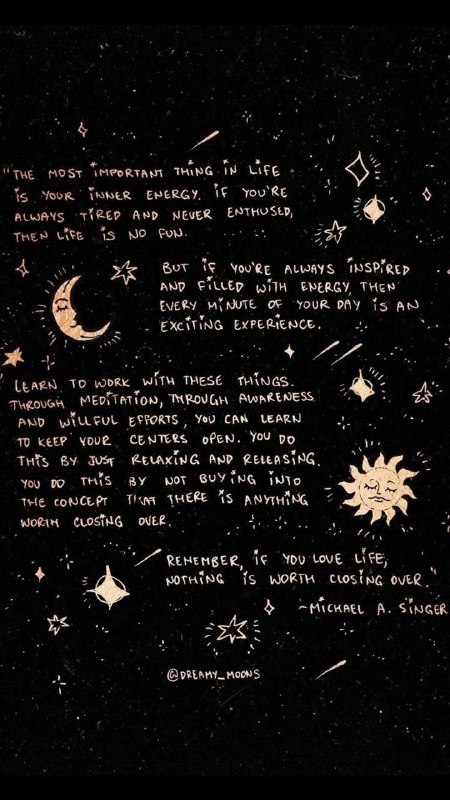 "THE MOST IMPORTANT THING IN LIFE
IS YOUR INNER ENERGY. IF YOU'RE
ALWAYS TIRED AND NEVER ENTHUSED,
THEN LIFE IS NO FUN.
BUT IF YOU'RE ALWAYS INSPIRED
AND FILLED WITH ENERGY, THEN
EVERY MINUTE OF YOUR DAY IS AN
EXCITING EXPERIENCE.
LEARN TO WORK WITH THESE THINGS.
THROUGH MEDITATION, THROUGH AWARENESS
AND WILLFUL EFFORTS, YOU CAN LEARN
TO KEEP YOUR CENTERS OPEN. YOU DO
THIS BY JUST RELAXING AND RELEASING.
YOU DO THIS BY NOT BUYING INTO
THE CONCEPT THAT THERE IS ANYTHING
WORTH CLOSING OVER.
REMEMBER, IF YOU LOVE LIFE,
NOTHING IS WORTH CLOSING OVER."
~MICHAEL A. SINGER
@DREAMY_MOONS